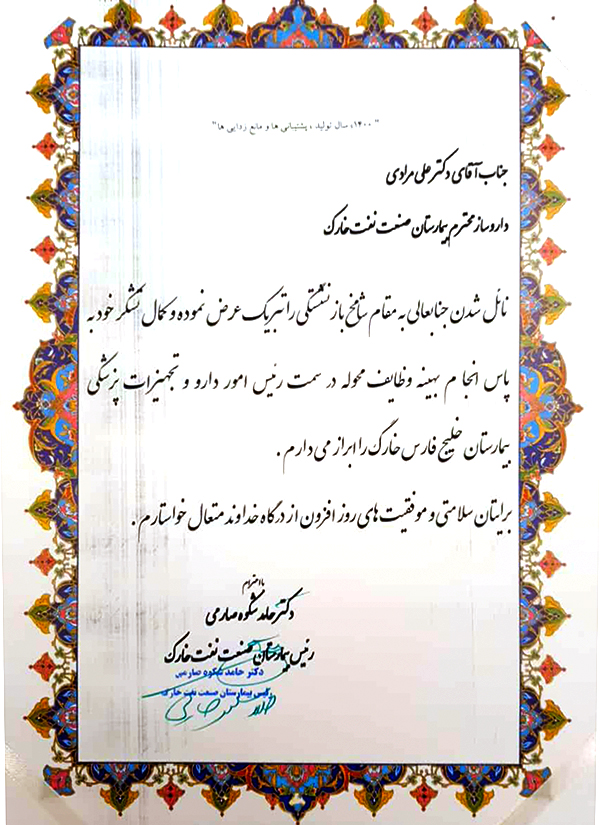 "۱۴۰۰، سال تولید، پشتیبانی ها و مانع زدایی ها"
جناب آقای دکتر علی مرادی
داروساز محترم بیمارستان صنعت نفت خارک
نائل شدن جنابعالی به مقام شامخ بازنشستگی را تبریک عرض نموده و کمال تشکر خود به
پاس انجام بهینه وظایف محوله در سمت رئیس امور دارو و تجهیزات پزشکی
بیمارستان خلیج فارس خارگ را ابراز می دارم.
برایتان سلامتی و موفقیت های روز افزون از درگاه خداوند متعال خواستارم.
با احترام
دکتر حامد شکوه صارمی
رئیس بیمارستان صنعت نفت خارک
دکتر حامد شکوه صارمی
رئیس بیمارستان صنعت نفت خارک